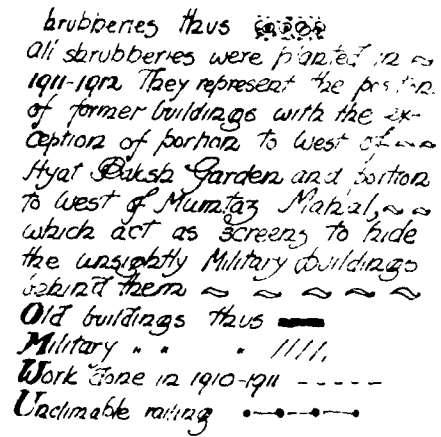 hrubberies thus
All shrubberies were planted in
1911-1912 They represent the position
of former buildings with the ex-
ception of portion to West of
Hyat Baksh Garden and portion
to West of Mumtaz Mahal,
which act as Screens to hide
the unsightly Military buildings
behind them
Old buildings thus
Military " " "
Work done in 1910-1911
Unclimable railing